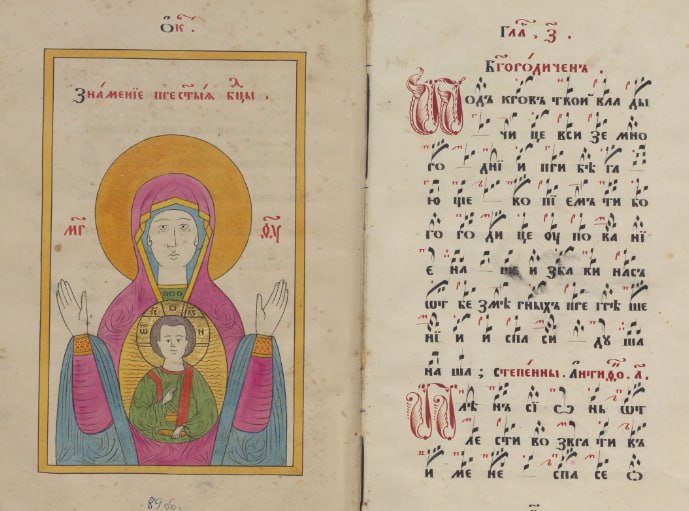 Ѻк҃.
Знаменїе прест҃ыѧ бц҃ы.
МР҃ ѲУ҃
89 об.
Гла҃, З҃.
Бг҃ородиченъ.
Подъ кровъ твои вла ды
чи це вси зе мно
ро днїи и при бѣ га
ю ще во пї емъ ти бо
го ро ди це оу по ва нї
е на ше и зба ви насъ
ѿ бе змѣ рныхъ пре грѣ ше
нї и и спа си ду ша
на ша; степенны. антифѡ҃. а҃.
Плѣ нъ сї ѡ нь ѿ
ле сти во звра ти въ
и ме не спа се о